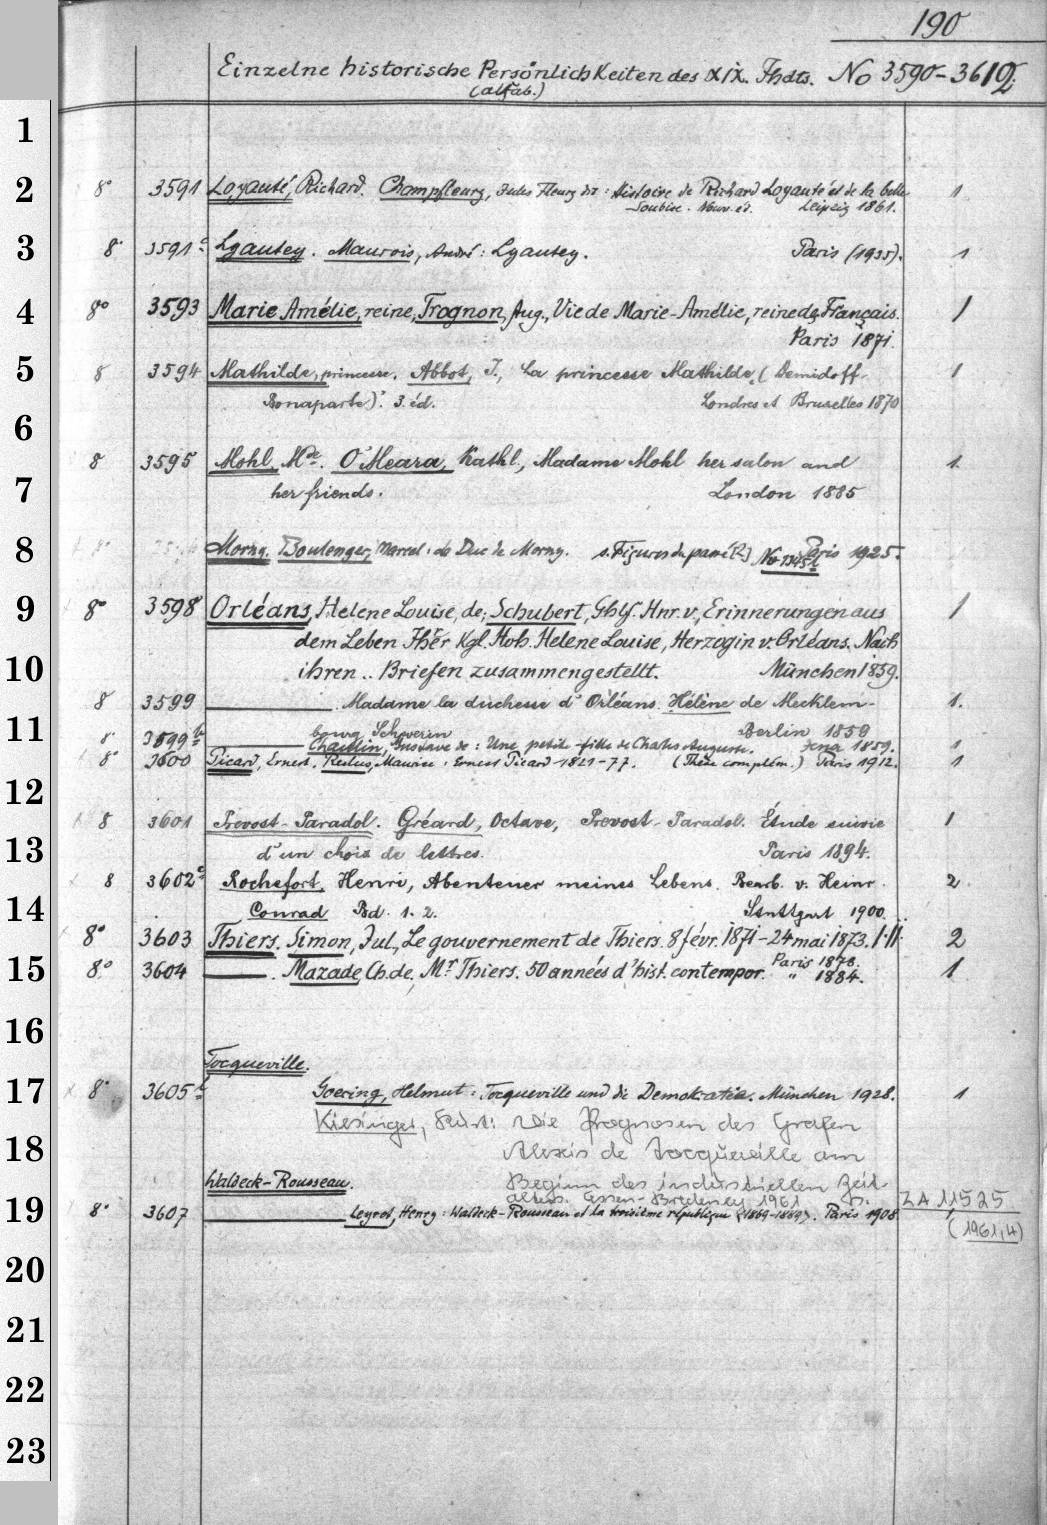 190
Einzelne historische Persönlichkeiten des XIX. Jhdts. No 3590-3612.
(alfab.)
1
2 8° 3591 Loyauté, Richard. Champfleury, Jules Fleury dit: Histoire de Richard Loyauté et de la belle 1
Soubise. Nouv. éd. Leipzig 1861.
3 8° 3591c Lyautey. Maurois, André: Lyautey. Paris (1935). 1
4 8° 3593 Marie Amélie, reine, Trognon, Aug., Vie de Marie-Amélie, reine des Français. 1
Paris 1871.
5 8 3594 Mathilde, princesse. Abbot, J., La princesse Mathilde (Demidoff- 1
Bonaparte). 3. éd. Londres et Bruxelles 1870
6
8 3595 Mohl, Mde. O'Meara, Kathl., Madame Mohl her salon and 1.
7 her friends. London 1885
8 8° Morny. Boulenger, Marcel: Le Duc de Morny. s. Figures du passé [2] No 1345 Paris 1925.
9 8° 3598 Orléans, Helene Louise, de; Schubert, Ghlf. Hnr. v., Erinnerungen aus 1
dem Leben Ihrer Kgl. Hoh. Helene Louise, Herzogin v. Orléans. Nach
10 ihren .. Briefen zusammengestellt. München 1859.
8 3599 Madame la duchesse d'Orléans. Hélène de Mecklem- 1.
11 bourg Schwerin Berlin 1859
8° 3599b Gustave de: Une petite-fille de Charles Auguste. Jena 1859. 1
8° 3600 Picard, Ernest. Reclus, Maurice: Ernest Picard 1821-77. (Thèse complém.) Paris 1912. 1
12
8 3601 Prevost-Paradol. Gréard, Octave, Prevost-Paradol. Étude suivie 1
13 d'un choix de lettres. Paris 1894.
8 3602c Rochefort, Henri, Abenteuer meines Lebens. Bearb. v. Heinr. 2
14 Conrad Bd. 1. 2. Stuttgart 1900.
8° 3603 Thiers. Simon, Jul., Le gouvernement de Thiers. 8 févr. 1871-24 mai 1873. I.II. 2
Paris 1878.
15 8° 3604 Mazade, Ch. de, Mr Thiers. 50 années d'hist. contempor. " 1884. 1
16
Tocqueville.
17 8° 3605b Goering, Helmut: Tocqueville und die Demokratie. München 1928. 1
Kiesinger, Kurt: Die Prognosen des Grafen
18 Alexis de Tocqueville am
Waldeck-Rousseau. Beginn des industriellen Zeit-
alters. Essen-Bredeney 1961 ZA 11525
19 8° 3607 Leyret, Henry: Waldeck-Rousseau et la troisième république (1869-1889). Paris 1908
(1961,4)
20
21
22
23